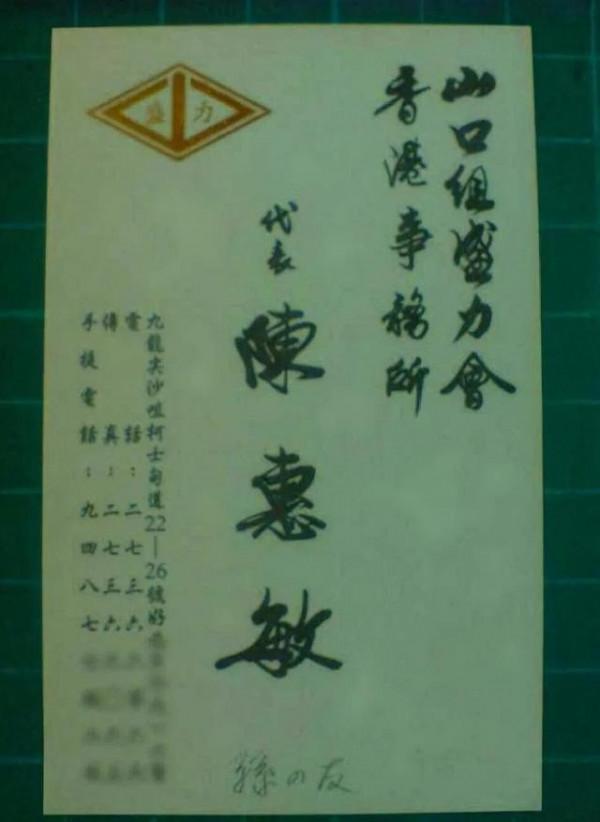 山口組盛力會
香港事務所
代表 陳惠敏
盛 力
九龍尖沙咀柯士甸道22—26號好
電話：二七三六
傳真：二七三六
手提電話：九四八七
孫の友